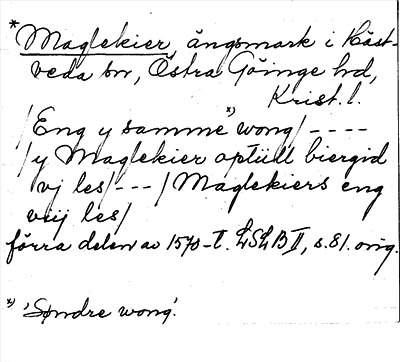 * Maglekier, ängsmark i Häst-
veda sn, Östra Göinge hd,
Krist. l.
/Eng y samme *) wong/ - - - -
/y Maglekier optüll biergid
vj les/ - - - / Maglekiers eng
viij les/
förra delen av 1570-t. LSLB II, s. 81. orig.
*) 'Søndre wong'.